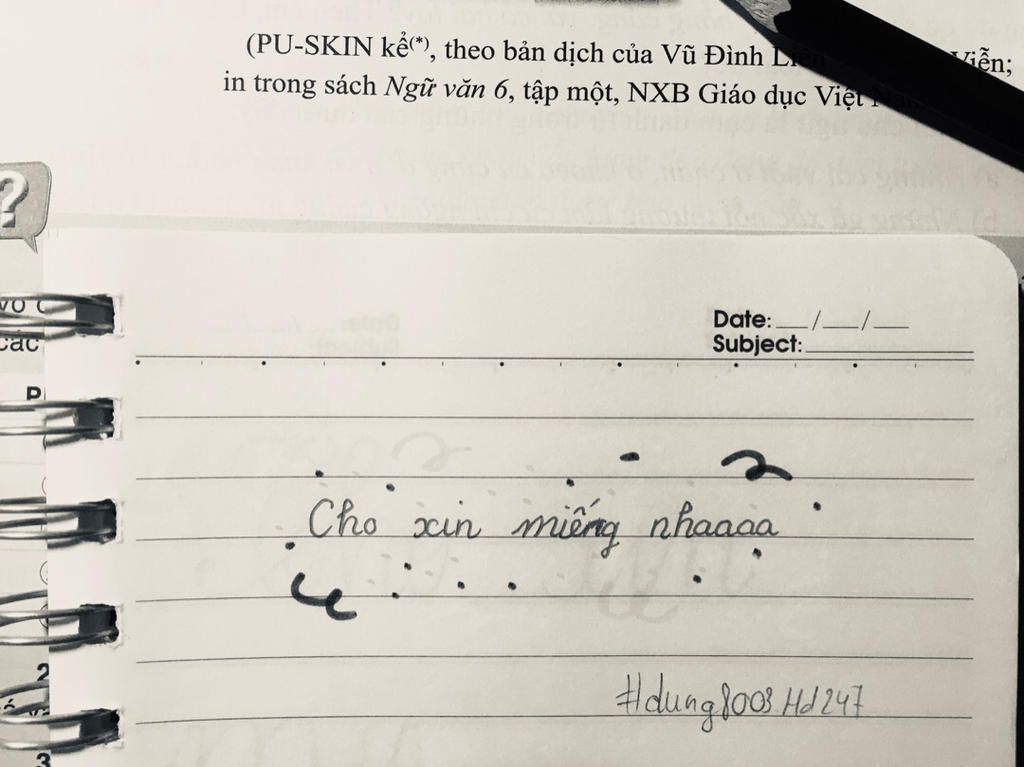 (PU-SKIN kể(*), theo bản dịch của Vũ Đình Liên Viễn;
in trong sách Ngữ văn 6, tập một, NXB Giáo dục Việt Nam
?
Date: __/__/__
Subject:
các
P
Cho xin miếng nhaaaa
2
#dung8003.Hd247
3